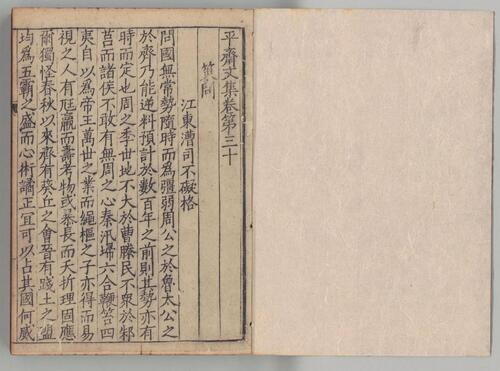 平齋文集卷第三十
策問
江東漕司不礙格
問國無常勢隨時而為彊弱周公之於魯太公之
於齊乃能逆料預計於數百年之前則其勢亦有
時而定也周之季世地不大於曹滕民不衆於邾
莒而諸侯不敢有無周之心秦汛埽六合鞭笞四
夷自以為帝王萬世之業而繩樞之子亦得而易
視之人有尫羸而壽考物或恭長而夭折理固應
爾獨怪春秋以來齊有葵丘之會晉有踐土之盟
均為五霸之盛而心術譎正宜可以占其國何威